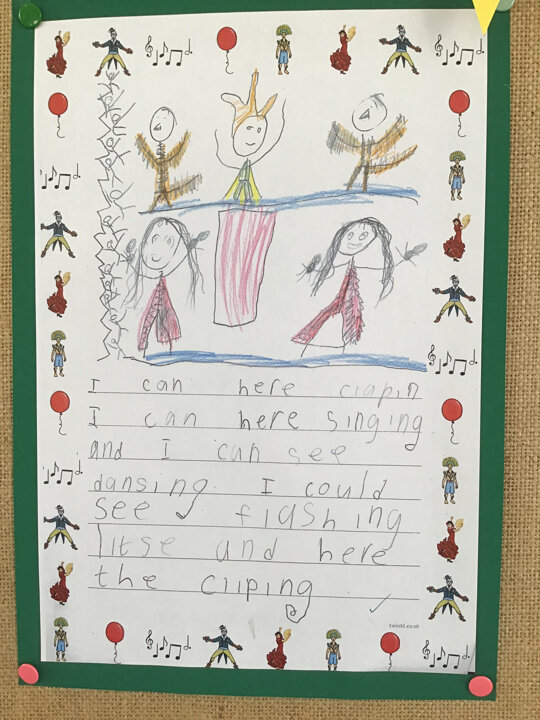 I can here clapin
I can here singing
and I can see
dansing I could
see flashing
litse and here
the cliping
twinkl.co.uk